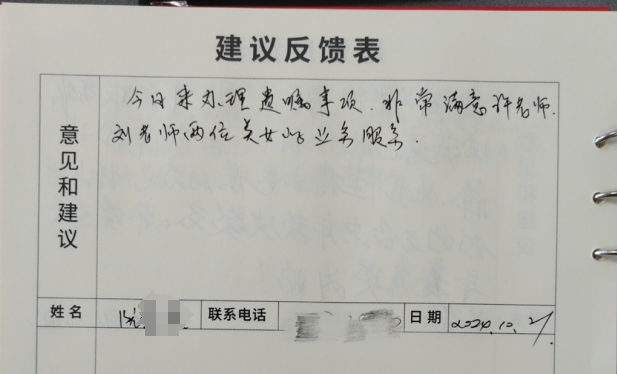 建议反馈表
今日来办理遗嘱事项.非常满意许老师.
刘老师两位美女的业务服务.
意见和建议
姓名
联系电话
日期 2024.10.21.